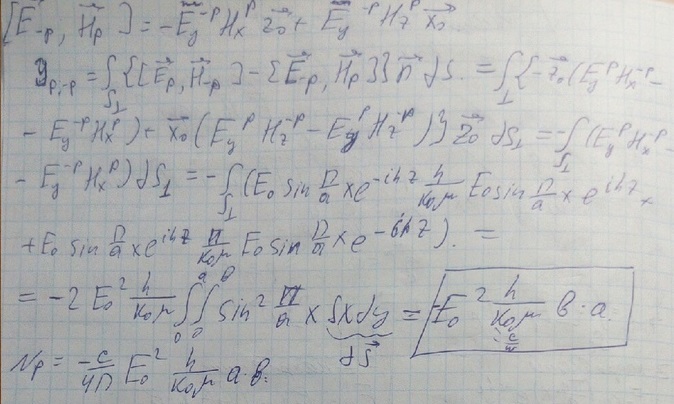 [E⃗₋ₚ, H⃗ₚ] = -E⃗y⁻ᵖ Hxᵖ z⃗₀ + E⃗y⁻ᵖ Hzᵖ x⃗₀.
𝒥p,-p = ∫S⊥ {[E⃗p, H⃗-p] - [E⃗-p, H⃗p]} n⃗ dS. = ∫⊥ {-z⃗₀ (Ey^p Hx^-p -
- Ey^-p Hx^p) + x⃗₀ (Ey^p Hz^-p - Ey^p Hz^-p)} z⃗₀ dS⊥ = -∫S⊥ (Ey^p Hx^-p -
- Ey^-p Hx^p) dS⊥ = -∫S⊥ (E₀ sin π/a x e^-ihz h/k₀μ E₀ sin π/a x e^ihz +
+ E₀ sin π/a x e^ihz h/k₀μ E₀ sin π/a x e^-ihz). =
= -2 E₀² h/k₀μ ∫₀^a ∫₀^в sin² π/a x dx dy = -E₀² h/k₀μ в·a.
dS⃗
c/w
Np = -c/4π E₀² h/k₀μ a·в.